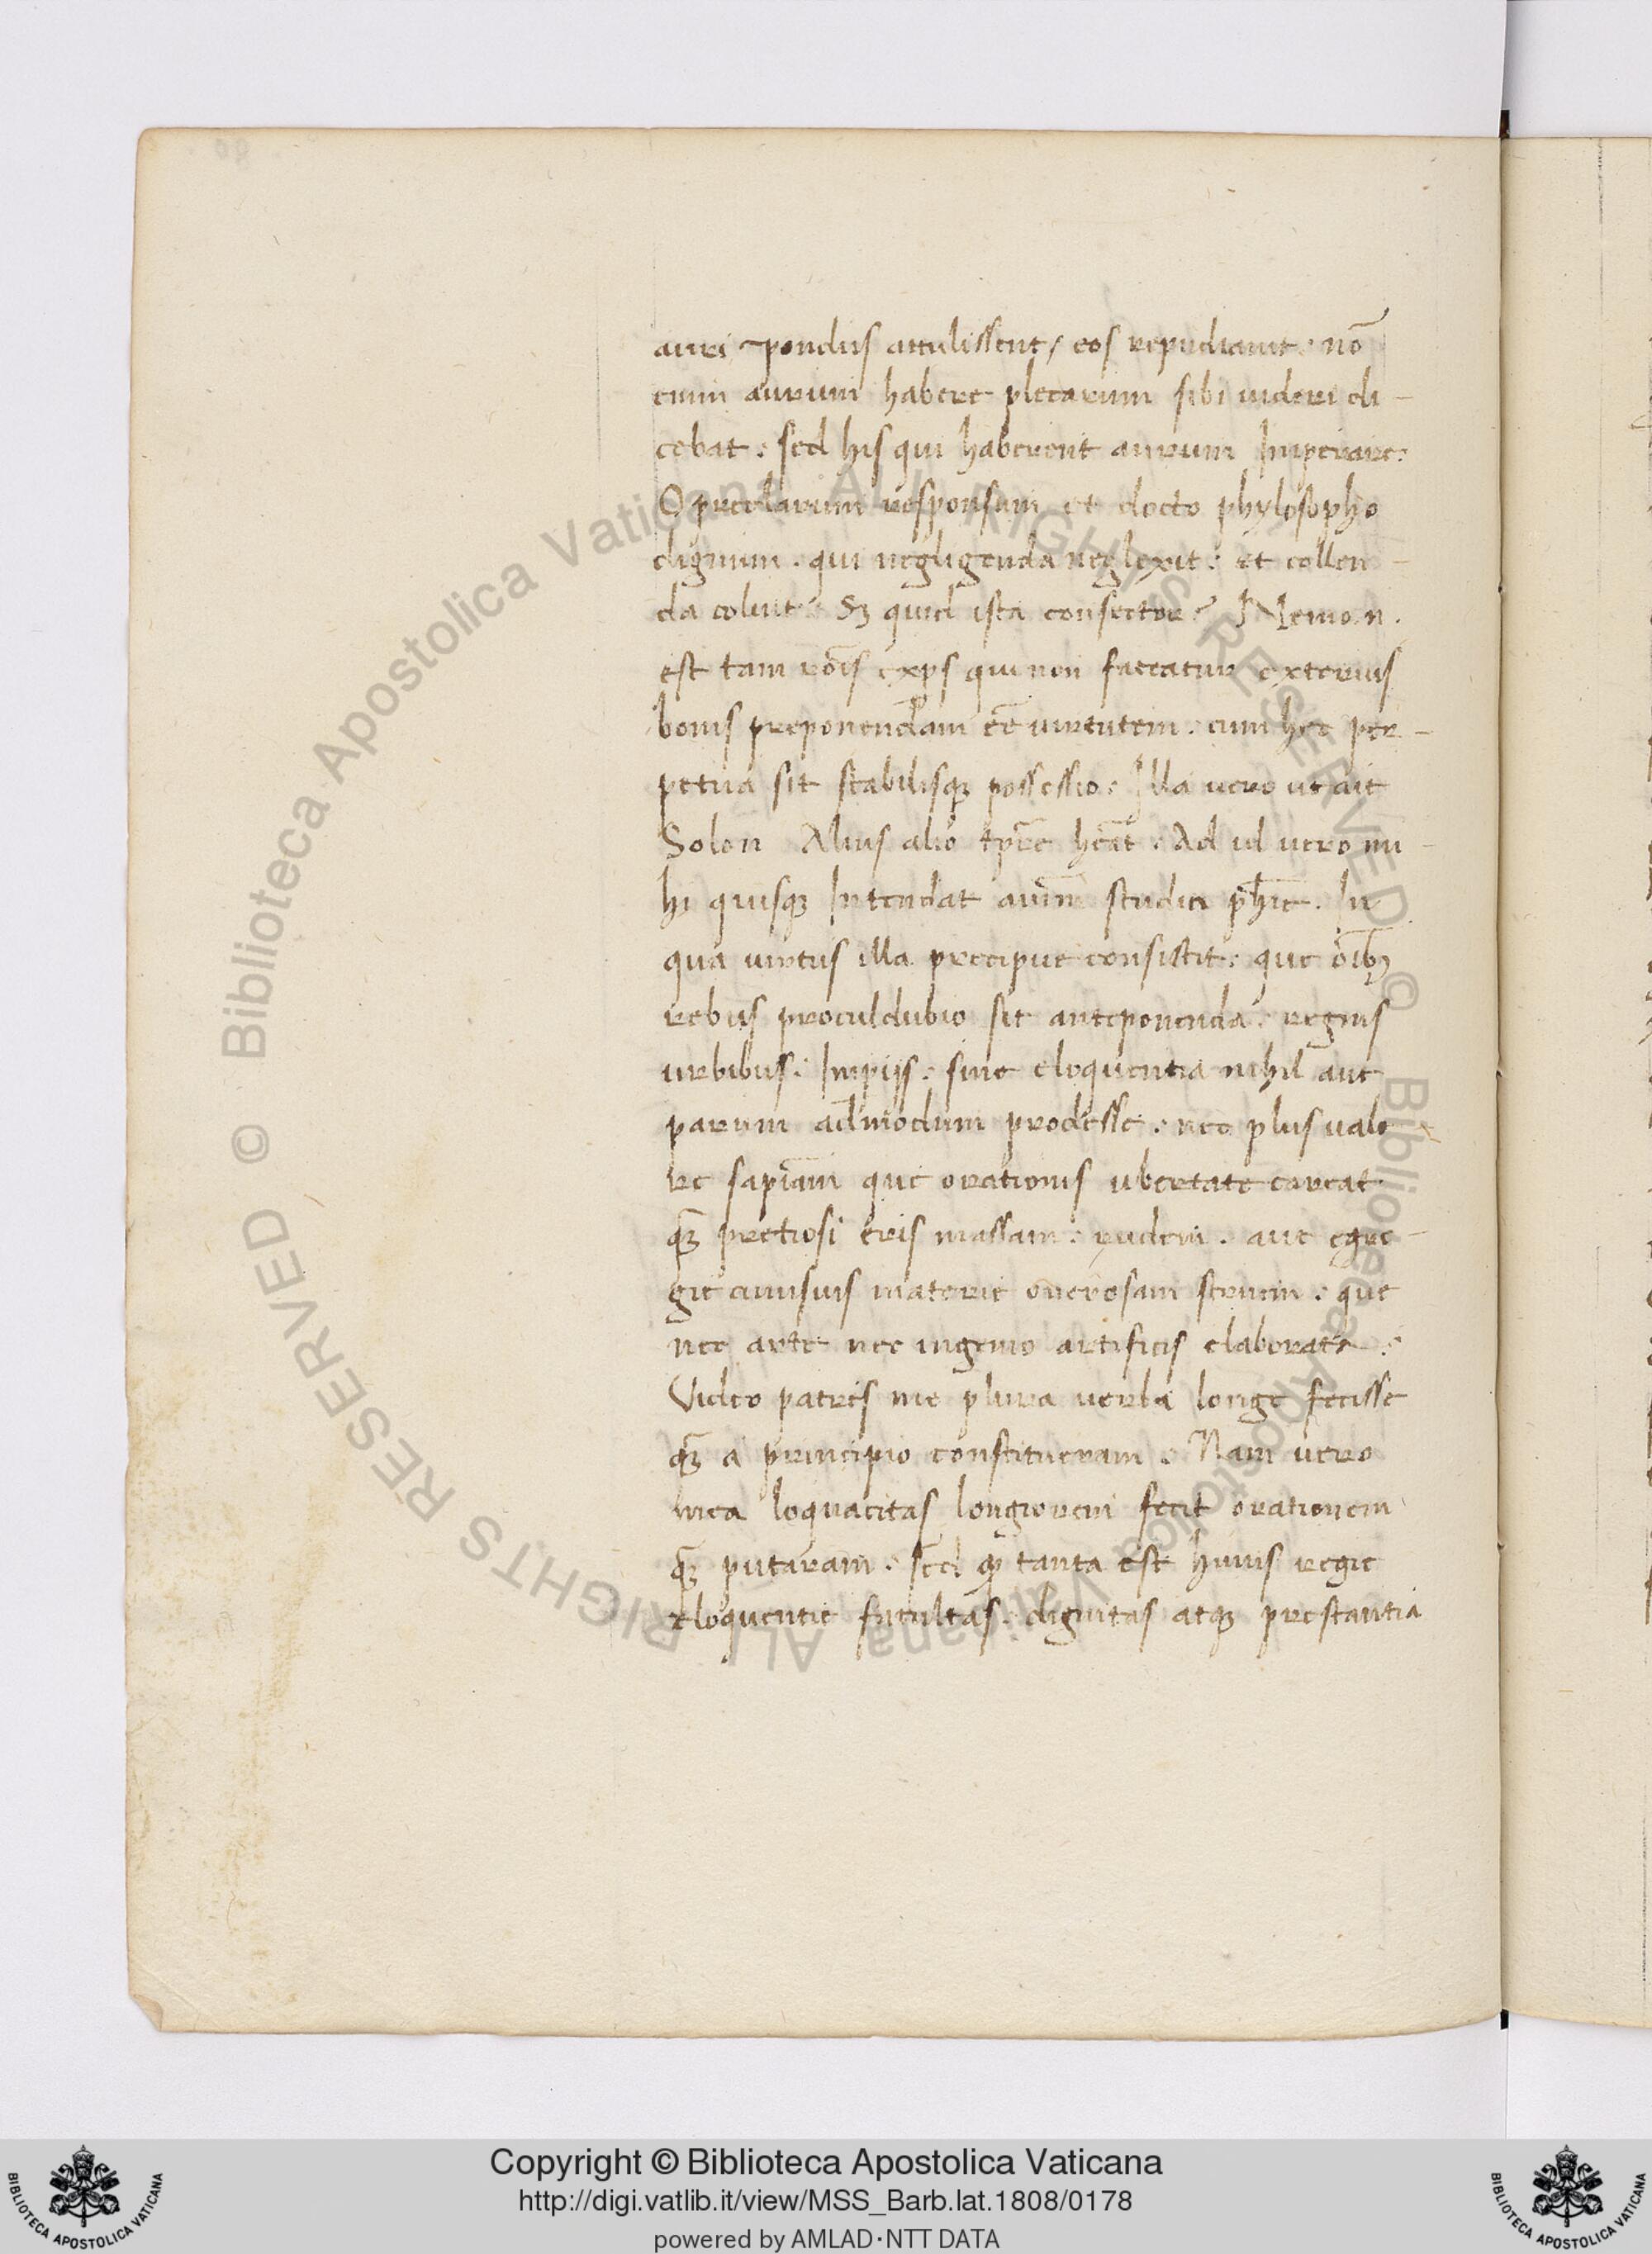 auri pondus attulissent / eos repudiauit · nō
enim aurum habere preclarum sibi uideri di-
cebat : sed his qui haberent aurum Imperare :
O preclarum responsum et docto phylosopho
dignum . qui negligenda neglexit : et collen-
da coluit : Sꝫ quid ista consector ? Nemo .n.
est tam rōis exps qui non fateatur externis
bonis preponendam eē uirtutem . cum hec per-
petua sit stabilisqꝫ possessio : Illa uero ut ait
Solon Alius alio tpr̄e hēat . Ad id uero mi-
hi quisqꝫ Intendat animū studia ph̄ie . In
qua uirtus illa precipue consistit : que oībꝫ
rebus proculdubio sit anteponenda : regnis
urbibus : Impijs : sine eloquentia nihil aut
parum admodum prodesse . nec plus uale-
re sapīam que orationis ubertate careat
qꝫ̄ pretiosi eris massam : rudem . aut egre-
gie cuiusuis materie onerosam struem . que
nec arte nec ingenio artificis elaborata :
Video patres me plura uerba longe fecisse
qꝫ̄ a principio constitueram : Nam uero
mea loquacitas longiorem fecit orationem
qꝫ̄ putaram . sed ꝙ tanta est huius regie
eloquentie facultas . dignitas atqꝫ prestantia
Copyright © Biblioteca Apostolica Vaticana
http://digi.vatlib.it/view/MSS_Barb.lat.1808/0178
powered by AMLAD·NTT DATA
© Biblioteca Apostolica Vaticana ALL RIGHTS RESERVED © Biblioteca Apostolica Vaticana ALL RIGHTS RESERVED
BIBLIOTECA APOSTOLICA VATICANA
BIBLIOTECA APOSTOLICA VATICANA